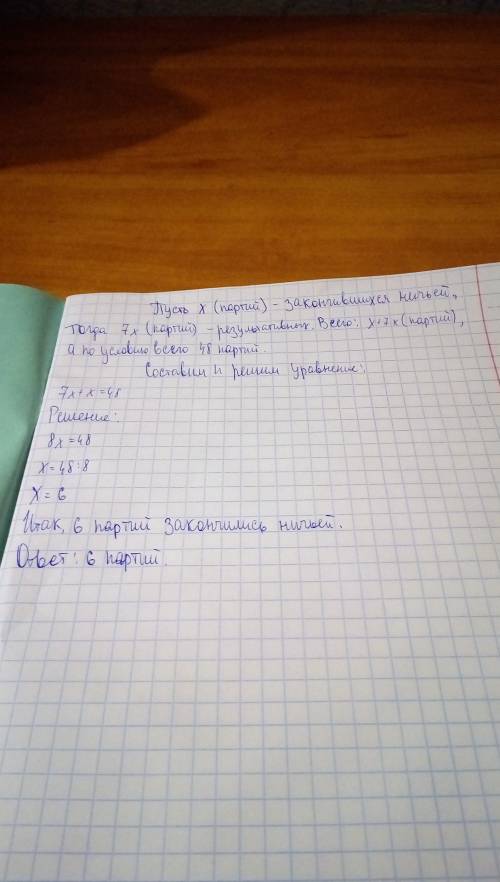 Пусть x (партий) - закончившихся ничьей,
тогда 7x (партий) - результативных. Всего: x+7x (партий),
а по условию всего 48 партий.
Составим и решим уравнение:
7x+x=48
Решение:
8x=48
x=48:8
X=6
Итак, 6 партий закончились ничьей.
Ответ: 6 партий.